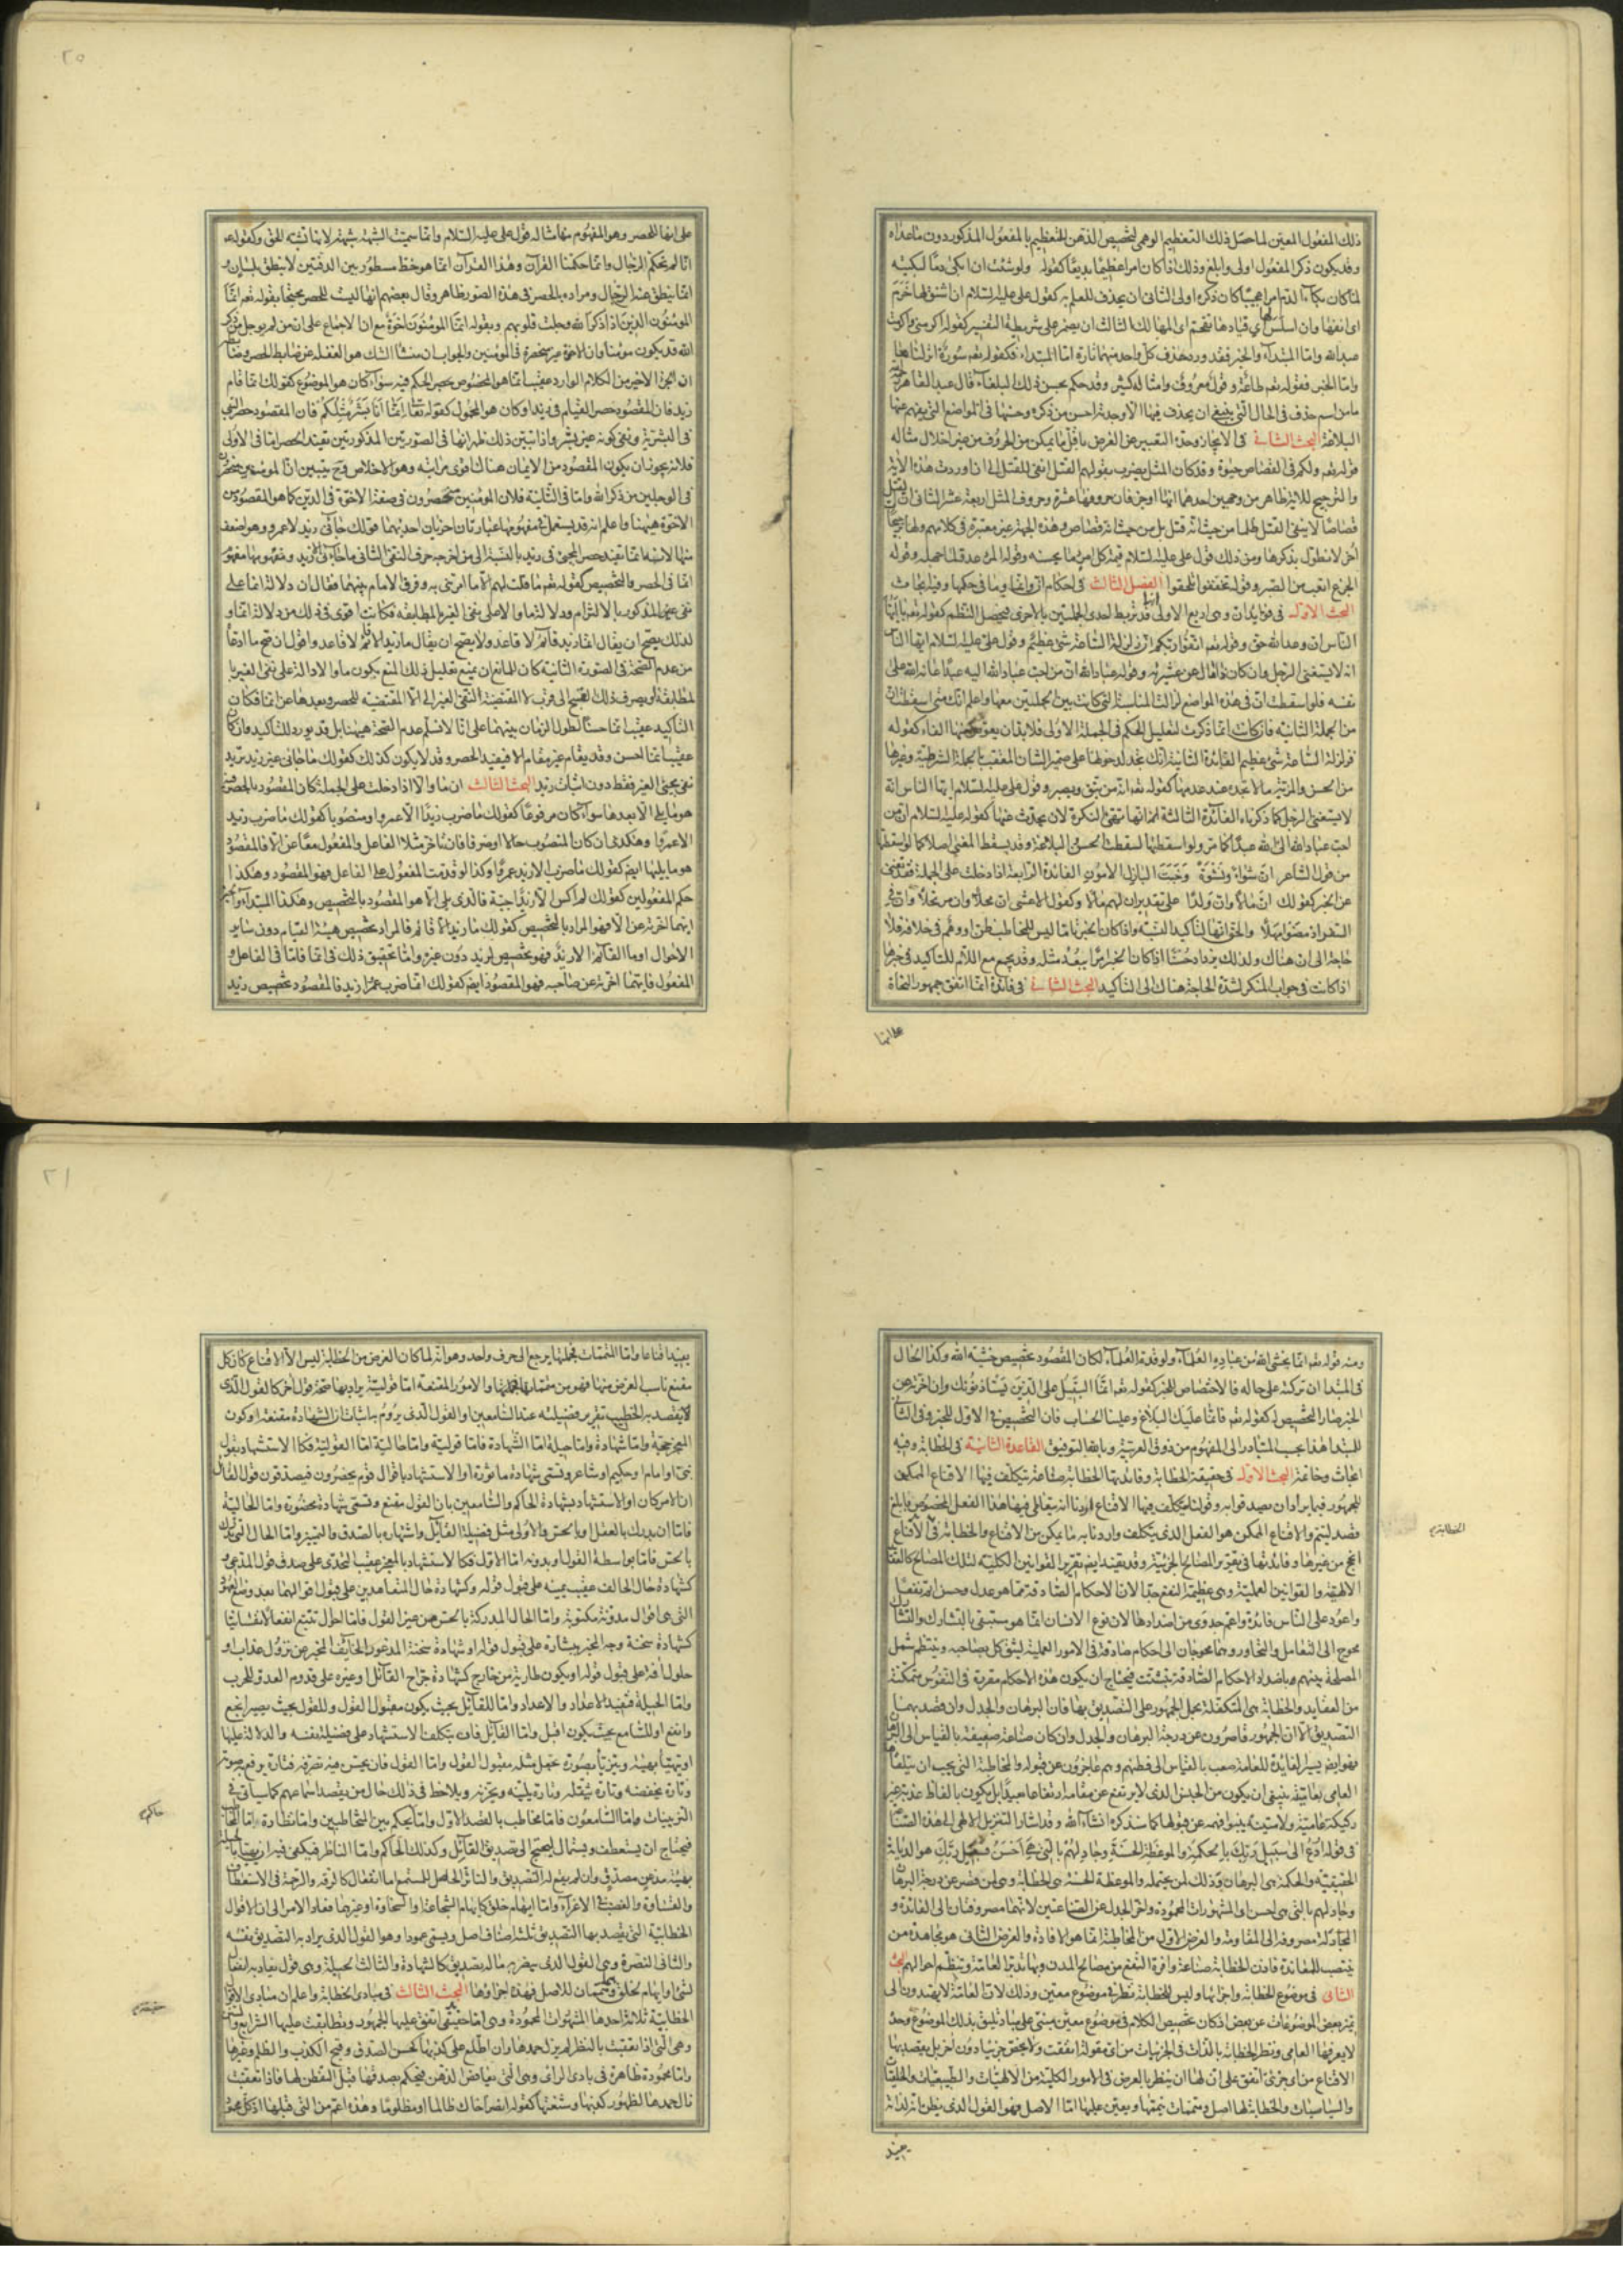 ذلك المفعول المعين لما حصل ذلك التعظيم الوهمي لتخصيص الذهن التعظيم بالمفعول المذكور دون ماعداه
وقد يكون ذكر المفعول اولى وابلغ وذلك اذا كان امرا عظيما بديعا كقوله ولو شئت ان ابكي دما لبكيته
لما كان بكاء الدم امرا عجيبا كان ذكره اولى الثاني ان يحذف للعلم به كقول علي عليه السلام ان شنق لها خرم
اي انفها وان اسلس لها اي قيادها تقحم اي المهالك الثالث ان يضمر على شريطة التفسير كقوله اكرمني واكرمت
عبد الله واما المبتدأ والخبر فقد ورد حذف كل واحد منهما تارة اما المبتدأ فكقوله تعم سورة انزلناها
واما الخبر فقوله تعم طاعة وقول معروف وامثاله كثير وقد حكم بحسن ذلك البلغاء قال عبد القاهر
ما من اسم حذف في الحال التي ينبغي ان يحذف فيها الا وحذفه احسن من ذكره
البلاغة البحث الثاني في الايجاز وحده التعبير عن الغرض باقل ما يمكن من الحروف من غير اخلال مثاله
قوله تعم ولكم في القصاص حيوة وقد كان المثل يضرب بقولهم القتل انفى للقتل الى ان وردت هذه الاية
والترجيح للاية ظاهر من وجهين احدهما انها اوجز فان حروفها عشرة وحروف المثل اربعة عشر الثاني ان القتل
قصاصا لا ينفي القتل ظلما من حيث انه قتل بل من حيث انه قصاص وهذه الجهة غير معتبرة في كلامهم
اخر لا نطول بذكرها ومن ذلك قول علي عليه السلام قيمة كل امرئ ما يحسنه وقوله المرء عدو لما جهله وقوله
الجزع اتعب من الصبر وقوله تخففوا تلحقوا الفصل الثالث في احكام ان وانما وما في حكمها وفيه ابحاث
البحث الاول في فوايد ان وهي اربع الاولى انها قد تربط احدى الجملتين بالاخرى فيحصل النظم كقوله تعم يا ايها
الناس ان وعد الله حق وقوله تعم اتقوا ربكم ان زلزلة الساعة شئ عظيم وقول علي عليه السلام ايها الناس
انه لا يستغني الرجل وان كان ذا مال عن عشيرته وقوله عباد الله ان من احب عباد الله اليه عبدا اعانه الله على
نفسه فلو اسقطت ان في هذه المواضع لزالت المناسبة التي كانت بين الجملتين معها واعلم انك متى اسقطت ان
من الجملة الثانية فان كانت انما ذكرت لتعليل الحكم في الجملة الاولى فلا بد ان يعوض عنها الفاء كقوله
فزلزلة الساعة شئ عظيم الفائدة الثانية انك تجد لدخولها على ضمير الشان المعقب بالجملة الشرطية وغيرها
من الحسن والمزية ما لا تجده عند عدمها كقوله تعم انه من يتق ويصبر وقول علي عليه السلام ايها الناس انه
لا يستغني الرجل كما ذكرناه الفائدة الثالثة انها تهيئ النكرة لان يحدث عنها كقوله عليه السلام ان من
احب عباد الله الى الله عبدا كما مر ولو اسقطتها لسقطت الحسن والبلاغة وقد يسقط المعنى اصلا كما لو اسقطتها
من قول الشاعر ان شواء ونشوة وخبب البازل الامون الفائدة الرابعة اذا دخلت على الجملة فقد تغني
عن الخبر كقولك ان مالا وان ولدا على تقدير ان لهم مالا وكقول الاعشى ان محلا وان مرتحلا وان في
السفر اذ مضوا مهلا والحق انها لتاكيد النسبة واذا كان الخبر بامر ليس للمخاطب ظن او وهم في خلافه فلا
حاجة الى ان هناك ولذلك يزداد حسنا اذا كان الخبر امرا يبعد مثله وقد يجمع مع اللام للتاكيد في خبرها
اذا كانت في جواب المنكر لشدة الحاجة هناك الى التاكيد البحث الثاني في فائدة انما اتفق جمهور النحاة
على انها
٢٠
على انها للحصر وهو المفهوم منها مثاله قول علي عليه السلام وانما سميت الشبهة شبهة لانها تشبه الحق وكقوله
انا لم نحكم الرجال وانما حكمنا القرآن وهذا القرآن انما هو خط مسطور بين الدفتين لا ينطق بلسان و
انما ينطق عنه الرجال ومراده بالحصر في هذه الصور ظاهر وقال بعضهم انها ليست للحصر محتجا بقوله تعم انما
المؤمنون الذين اذا ذكر الله وجلت قلوبهم وبقوله انما المؤمنون اخوة مع ان الاجماع على ان من لم يوجل من ذكر
الله قد يكون مؤمنا وان الاخوة غير منحصرة في المؤمنين والجواب ان منشأ الشك هو الغفلة عن ضابط الحصر
ان الجزء الاخير من الكلام الوارد عقيب انما هو المخصوص بحصر الحكم فيه سواء كان هو الموضوع كقولك انما قام
زيد فان المقصود حصر القيام في زيد او كان هو المحمول كقوله تعا انما انا بشر مثلكم فان المقصود حصر النبي
في البشرية ونفي كونه غير بشر واذا تبين ذلك ظهر انها في الصورتين المذكورتين تفيد الحصر اما في الاولى
فلانه يجوز ان يكون المقصود من الايمان هناك اقوى مراتبه وهو الاخلاص فح يتبين ان المؤمنين منحصرون
في الوجلين من ذكر الله واما في الثانية فلان المؤمنين منحصرون في صفة الاخوة في الدين كما هو المقصود من
الاخوة هيهنا واعلم انه قد يستعمل في مفهومها عبارتان اخريان احديهما قولك جاءني زيد لا عمرو وهو اضعف
من دلالة انما و
لذلك يصح ان يقال انما زيد قائم لا قاعد ولا يصح ان يقال ما زيد الا قائم لا قاعد
التاكيد عقيب انما حسنا لطول الزمان بينهما على انا لا نسلم عدم الصحة هيهنا بل قد يورد للتاكيد وان كان
عقيب انما احسن وقد يقام غير مقام الا فيفيد الحصر وقد لا يكون كذلك كقولك ما جاءني غير زيد تريد
نفي مجئ الغير فقط دون اثبات زيد البحث الثالث ان ما والا اذا دخلت على الجملة كان المقصود بالحصر
هو ما يلي الا بعدها سواء كان مرفوعا كقولك ما ضرب زيدا الا عمرو او منصوبا كقولك ما ضرب زيد
الا عمرا وهكذى ان كان المنصوب حالا او ضرفا فان تاخر مثلا الفاعل والمفعول معا عن الا فالمقصود
هو ما يليها ايضا كقولك ما ضرب الا زيد عمرا وكذا لو قدمت المفعول على الفاعل فهو المقصود وهكذا
حكم المفعولين كقولك لم اكس الا زيدا جبة فالذي يلي الا هو المقصود بالتخصيص وهكذا المبتدأ والخبر
ايهما اخرته عن الا فهو المراد بالتخصيص كقولك ما زيد الا قائم فالمراد تخصيص هيئة القيام دون ساير
الاحوال او ما القائم الا زيد فهو تخصيص لزيد دون غيره واما تحقيق ذلك في انما فاما في الفاعل و
المفعول فايهما اخرته عن صاحبه فهو المقصود ايضا كقولك انما ضرب عمرا زيد فالمقصود تخصيص زيد
ومنه قوله تعم انما يخشى الله من عباده العلماء ولو قدم العلماء لكان المقصود تخصيص خشية الله وكذا الحال
في المبتدا ان تركته على حاله فالاختصاص للخبر كقوله تعم انما السبيل على الذين يستاذنونك وان اخرته عن
الخبر صار التخصيص له كقوله تعم فانما عليك البلاغ وعلينا الحساب فان التخصيص في الاول للخبر وفي الثاني
للمبتدا هذا بحسب المتبادر الى المفهوم من ذوق العربية وبالله التوفيق القاعدة الثانية في الخطابة وفيه
ابحاث وخاتمة البحث الاول في حقيقة الخطابة وفائدتها الخطابة صناعة يتكلف فيها الاقناع الممكن
للجمهور فيما يراد ان يصدقوا به وقولنا يتكلف فيها الاقناع اردنا انه يتعاطى فيها هذا الفعل المخصوص بابلغ
قصد ليتم والاقناع الممكن هو الفعل الذي يتكلف واردنا به ما يمكن من الاقناع والخطابة في الاقناع
انجح من غيرها وفائدتها في تقرير المصالح الجزئية وقد يفيد ايضا تقرير القوانين الكلية لتلك المصالح كالعقائد
الالهية والقوانين العملية وهي عظيمة النفع جدا لان الاحكام الصادقة مما هو عدل وحسن اتم نفعا
واعود على الناس فائدة واعم جدوى من اضدادها لان نوع الانسان انما هو مستبقى بالتشارك والتشارك
محوج الى التعامل والتجاور وهما محوجان الى احكام صادقة في الامور العملية ليثق كل بصاحبه وينتظم شمل
المصلحة بينهم وباضداد الاحكام الصادقة تتشتت فيحتاج ان يكون هذه الاحكام مقررة في النفوس متمكنة
من العقايد والخطابة هي المتكفلة بحمل الجمهور على التصديق بها فان البرهان والجدل وان قصد بهما
التصديق الا ان الجمهور قاصرون عن درجة البرهان والجدل وان كان صناعة ضعيفة بالقياس الى البرهان
فهو ايضا يسير الفايدة للعامة صعب بالقياس الى فطنهم وهم عاجزون عن قبوله والمخاطبة التي يجب ان يتلقاها
العامي بعاميته ينبغي ان يكون من الجنس الذي لا يرتفع عن مقامه ارتفاعا بعيدا بل يكون بالفاظ عذبة غير
ركيكة عامية ولا متينة ينبو فهمه عن قبولها كما سنذكره انشاء الله وقد اشار التنزيل الالهي الى هذه الصناعات
في قوله ادع الى سبيل ربك بالحكمة والموعظة الحسنة وجادلهم بالتي هي احسن فسبيل ربك هو الديانة
الحقيقية والحكمة هي البرهان وذلك لمن يحتمله والموعظة الحسنة هي الخطابة وهي لمن قصر عن درجة البرهان
وجادلهم بالتي هي احسن اي المشهورات المحمودة واخر الجدل عن الصناعتين لانهما مصروفتان الى الفائدة و
المجادلة مصروفة الى المقاومة والغرض الاول من المخاطبة انما هو الافادة والغرض الثاني هو مجاهدة من
ينتصب للمعاندة فاذن الخطابة صناعة وافرة النفع من مصالح المدن وبها تدبر العامة وتنظم احوالهم البحث
الثاني في موضوع الخطابة واجزائها وليس للخطابة نظر في موضوع معين وذلك لان العامة لا يهتدون الى
تميز بعض الموضوعات عن بعض اذ كان تخصيص الكلام في موضوع معين مبني على مباد تليق بذلك الموضوع وحده
لا يعرفها العامي ونظر الخطابة بالذات في الجزئيات من اي مقولة اتفقت ولا يختص جزئيا دون اخر بل يقصد بها
الاقناع من اي جزئي اتفق على ان لها ان ينظر بالعرض في الامور الكلية من الالهيات والطبيعيات والخلقيات
والسياسيات والخطابة لها اصل ومتممات تتمها ويعين عليها اما الاصل فهو القول الذي يظن انه لذاته
يفيد
الخطابة
٢١
يفيد اقناعا واما المتممات فجملتها يرجع الى حرف واحد وهو انه لما كان الغرض من الخطابة ليس الا الاقناع كان كل
مقنع ناسب لغرض منها فهو من متمماتها والامور المقنعة اما قولية يراد بها صحة قول اخر كالقول الذي
لا يقصد به الخطيب تقرير فضيلته عند السامعين او القول الذي يروم به اثبات ان الشهادة مقنعة او كون
المعجز حجة واما شهادة واما حيلة اما الشهادة فاما قولية واما حالية اما القولية فكالاستشهاد بقول
نبي او امام او حكيم او شاعر وتسمى شهادة ماثورة او الاستشهاد باقوال قوم يحضرون فيصدقون قول القائل
ان الامر كان او الاستشهاد بشهادة الحاكم والسامعين بان القول مقنع وتسمى شهادة محضورة واما الحالية
فاما ان يدرك بالعقل او بالحس والاولى مثل فضيلة القائل واشتهاره بالصدق والتمييز واما الحال التي تدرك
بالحس فاما بواسطة القول او بدونه اما الاول فكالاستشهاد بالمعجز عقيب التحدي على صدق قول المدعي و
كشهادة حال الحالف عقيب يمينه على قبول قوله وكشهادة حال المتعاهدين على قبول اقوالهما بعد وضع العهود
التي هي اقوال مدونة مكتوبة واما الحال المدركة بالحس من غير القول فاما احوال تتبع انفعالا نفسانيا
كشهادة سحنة وجه المخبر ببشارة على قبول قوله او شهادة سحنة المذعور الخايف المخبر عن نزول عذاب او
حلول آفة على قبول قوله او يكون طارئة من خارج كشهادة جراح القائل او غيره على قدوم العدو للحرب
واما الحيلة فتفيد الاعداد والاعداد اما للقائل بحيث يكون مقبول القول وللقول بحيث يصير انجع
وانفع او للسامع بحيث يكون اقبل واما القائل فان يتكلف الاستشهاد على فضيلة نفسه والدلالة عليها
او يتهيأ بهيئة ويتزيأ بصورة تجعل مثله مقبول القول واما القول فان يحسن فيه تصرفه فتارة يرفع به صوته
وتارة يخفضه وتارة يثقله وتارة يلينه ويحزنه ويلاحظ في ذلك حال من يقصد اسماعهم كما سياتي في
التزيينات واما السامعون فاما مخاطب بالقصد الاول واما حاكم بين المتخاطبين واما نظارة
فيحتاج ان يستعطف ويستمال ليجنح الى تصديق القائل وكذلك الحاكم واما الناظر فيكفي فيه ان يتهيأ
بهيئة مذعن مصدق وان لم يقع له التصديق والتاثر الحاصل للمستمع اما انفعال كالرقة والرحمة في الاستعطاف
والقساوة والغضب في الاغراء واما ايهام خلق كايهام الشجاعة او السخاوة او غيرهما فعاد الامر الى ان الاقوال
الخطابية التي يقصد بها التصديق ثلاثة اصناف اصل ويسمى عمودا وهو القول الذي يراد به التصديق نفسه
والثاني النصرة وهي القول الذي ينصر به ماله تصديق كالشهادة والثالث الحيلة وهي قول يفاد به انفعال
لشئ او ايهام بخلق وهما متممان للاصل فهذه اجزاؤها البحث الثالث في مبادئ الخطابة واعلم ان مبادئ الاقوال
الخطابية ثلاثة احدها المشهورات المحمودة وهي اما حقيقي اتفق عليها الجمهور وتطابقت عليها الشرايع والسنن
وهي التي اذا تعقبت بالنظر لم يزل حمدها وان اطلع على كذبها كحسن الصدق وقبح الكذب والظلم وغيرها
واما محمودة ظاهرة في بادي الراى وهي التي يغافص الذهن فيحكم بصدقها قبل التفطن لها فاذا تعقبت
زال حمدها لظهور كذبها وشنعتها كقوله انصر اخاك ظالما او مظلوما وهذه اعم من التي قبلها اذ كل محمود
حاكم
حقيقته